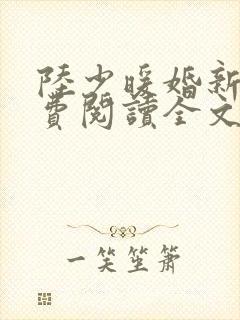 陸少暖婚新
費閱讀全文
一笑笙簫